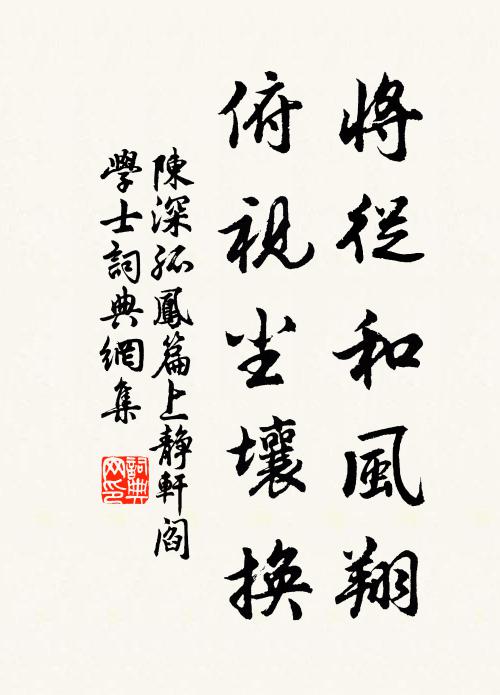 將從和風翔
俯視尘壤換
陳深孤鳳篇上靜軒閻
學士詞典網集
詞典網印